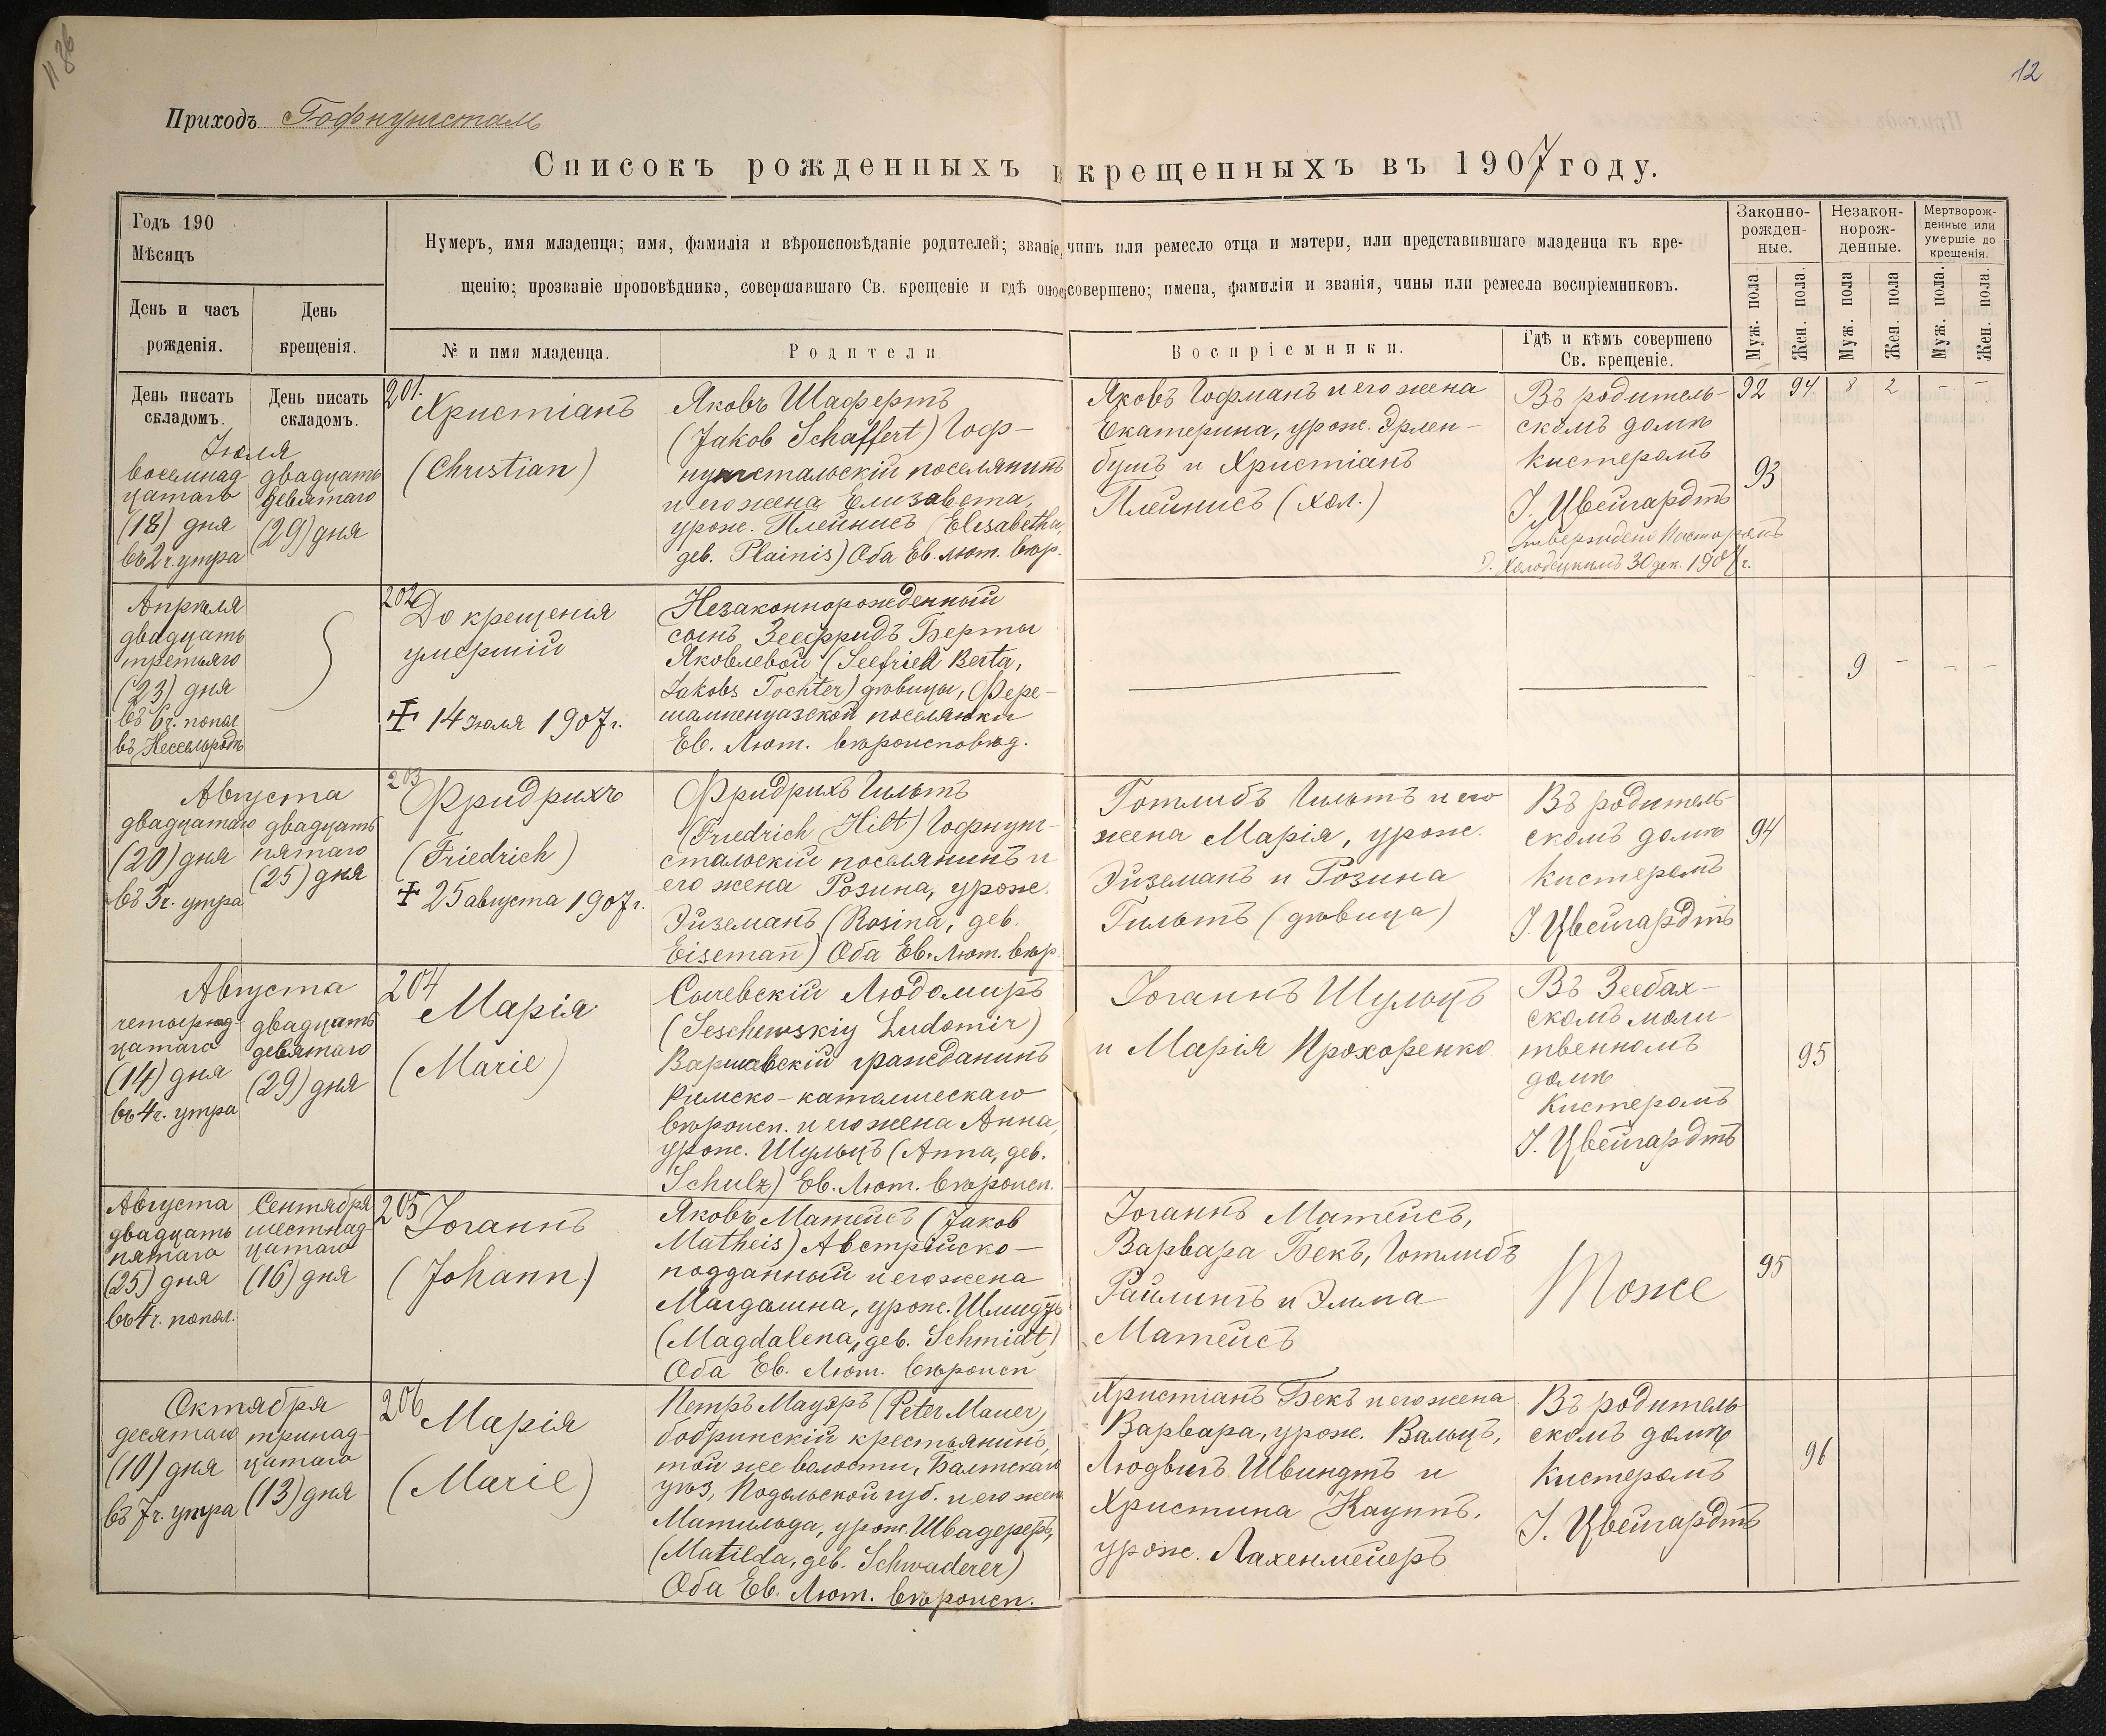 1186
12
Приходъ Гофнунгсталь
Списокъ рожденныхъ и крещенныхъ въ 1907 году.
Годъ 190
Мѣсяцъ
День и часъ
рожденія.
День
крещенія.
Нумеръ, имя младенца; имя, фамилія и вѣроисповѣданіе родителей; званіе, чинъ или ремесло отца и матери, или представившаго младенца къ кре-
щенію; прозваніе проповѣдника, совершавшаго Св. крещеніе и гдѣ оное совершено; имена, фамиліи и званія, чины или ремесла воспріемниковъ.
№ и имя младенца.
Родители
Воспріемники.
Гдѣ и кѣмъ совершено
Св. крещеніе.
Законно-
рожден-
ные.
Незакон-
норож-
денные.
Мертворож-
денные или
умершіе до
крещенія.
Муж. пола
Жен. пола.
Муж. пола
Жен. пола
Муж. пола.
Жен. пола.
День писать
складомъ.
День писать
складомъ.
Іюля
восемнад-
цатаго
(18) дня
въ 2 ч. утра
двадцать
девятаго
(29) дня
201.
Христіанъ
(Christian)
Яковъ Шафертъ
(Jakob Schaffert) Гоф-
нунгстальскій поселянинъ
и его жена Елизавета,
урож. Плейнисъ (Elisabetha,
geb. Plainis) Оба Ев. лют. вѣр.
Яковъ Гофманъ и его жена
Екатерина, урож. Эрлен-
бушъ и Христіанъ
Плейнисъ (хол.)
Въ родитель-
скомъ домѣ
кистеромъ
І. Цвейгардтъ
Утверждено Пасторомъ
Холодецкимъ 30 дек. 1907 г.
92 94. 8 2 - -
93
Апрѣля
двадцать
третьяго
(23) дня
въ 6 ч. попол.
въ Нессельроде
202
До крещенія
умершій
✝ 14 іюля 1907 г.
Незаконнорожденный
сынъ Зеефридъ Берты
Яковлевой (Seefried Berta,
Jakobs Tochter) дѣвицы, Фере-
шампенуазской поселянки
Ев. Лют. вѣроисповѣд.
- - 9 - - -
Августа
двадцатаго
(20) дня
въ 3 ч. утра
двадцать
пятаго
(25) дня
203
Фридрихъ
(Friedrich)
✝ 25 августа 1907 г.
Фридрихъ Гильтъ
(Friedrich Hilt) Гофнунг-
стальскій поселянинъ и
его жена Розина, урож.
Эйземанъ (Rosina, geb.
Eiseman̄) Оба Ев. Лют. вѣр.
Готлибъ Гильтъ и его
жена Марія, урож.
Эйземанъ и Розина
Гильтъ (дѣвица)
Въ родитель-
скомъ домѣ
кистеромъ
І. Цвейгардтъ
94
Августа
четырнад-
цатаго
(14) дня
въ 4 ч. утра
двадцать
девятаго
(29) дня
204
Марія
(Marie)
Сычевскій Людомиръ
(Seschewskiy Ludomir)
Варшавскій гражданинъ
Римско-католическаго
вѣроисп. и его жена Анна,
урож. Шульцъ (Anna, geb.
Schulz) Ев. Лют. вѣроисп.
Іоганнъ Шульцъ
и Марія Прохоренко
Въ Зеебах-
скомъ моли-
твенномъ
домѣ
Кистеромъ
І. Цвейгардтъ
95
Августа
двадцать
пятаго
(25) дня
въ 4 ч. попол.
Сентября
шестнад-
цатаго
(16) дня
205
Іоганнъ
(Johann)
Яковъ Матейсъ (Jakob
Matheis) Австрійско-
подданный и его жена
Магдалина, урож. Шмидтъ
(Magdalena, geb. Schmidt,)
Оба Ев. Лют. вѣроисп
Іоганнъ Матейсъ,
Варвара Бекъ, Готлибъ
Райлингъ и Эмма
Матейсъ
Тоже
95
Октября
десятаго
(10) дня
въ 7 ч. утра
тринад-
цатаго
(13) дня
206
Марія
(Marie)
Петръ Мауэръ (Peter Mauer)
бобринскій крестьянинъ,
той же волости, Балтскаго
уѣз, Подольской губ. и его жена
Матильда, урож. Швадереръ,
(Matilda, geb. Schwaderer)
Оба Ев. Лют. вѣроисп.
Христіанъ Бекъ и его жена
Варвара, урож. Вальцъ,
Людвигъ Швиндтъ и
Христина Кауппъ,
урож. Лахенмейеръ
Въ родитель-
скомъ домѣ
Кистеромъ
І. Цвейгардтъ
96